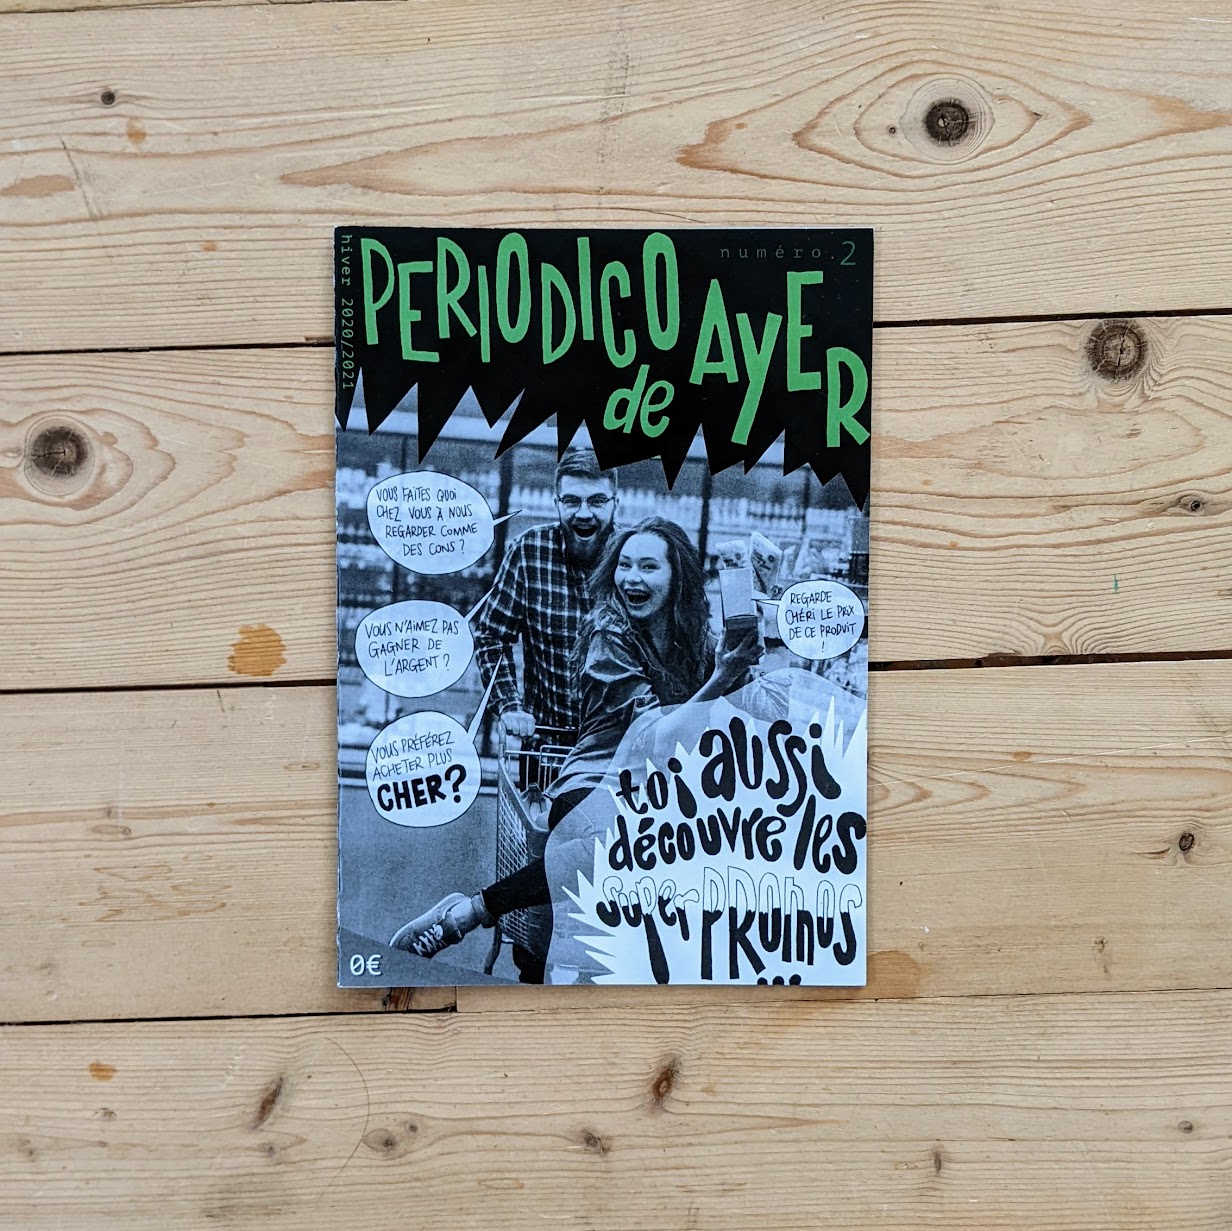 hiver 2020/2021
numéro.2
PERIODICO
de AYER
VOUS FAITES QUOI
CHEZ VOUS À NOUS
REGARDER COMME
DES CONS ?
VOUS N'AIMEZ PAS
GAGNER DE
L'ARGENT ?
VOUS PRÉFÉREZ
ACHETER PLUS
CHER?
REGARDE
CHÉRI LE PRIX
DE CE PRODUIT
!
toi aussi
découvre les
super PROMOS
...
0€